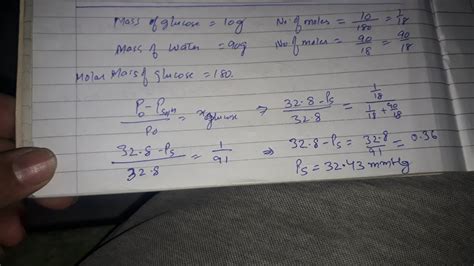 Mass of glucose = 10g No. of moles = 10/180 = 1/18
Mass of water = 90g No of moles = 90/18 = 90/18
Molar Mass of glucose = 180.
P₀ - Psoln / P₀ = x glucose ⇒ 32.8 - Ps / 32.8 = 1/18 / 1/18 + 90/18
32.8 - Ps / 32.8 = 1/91 ⇒ 32.8 - Ps = 32.8/91 = 0.36
Ps = 32.43 mmHg